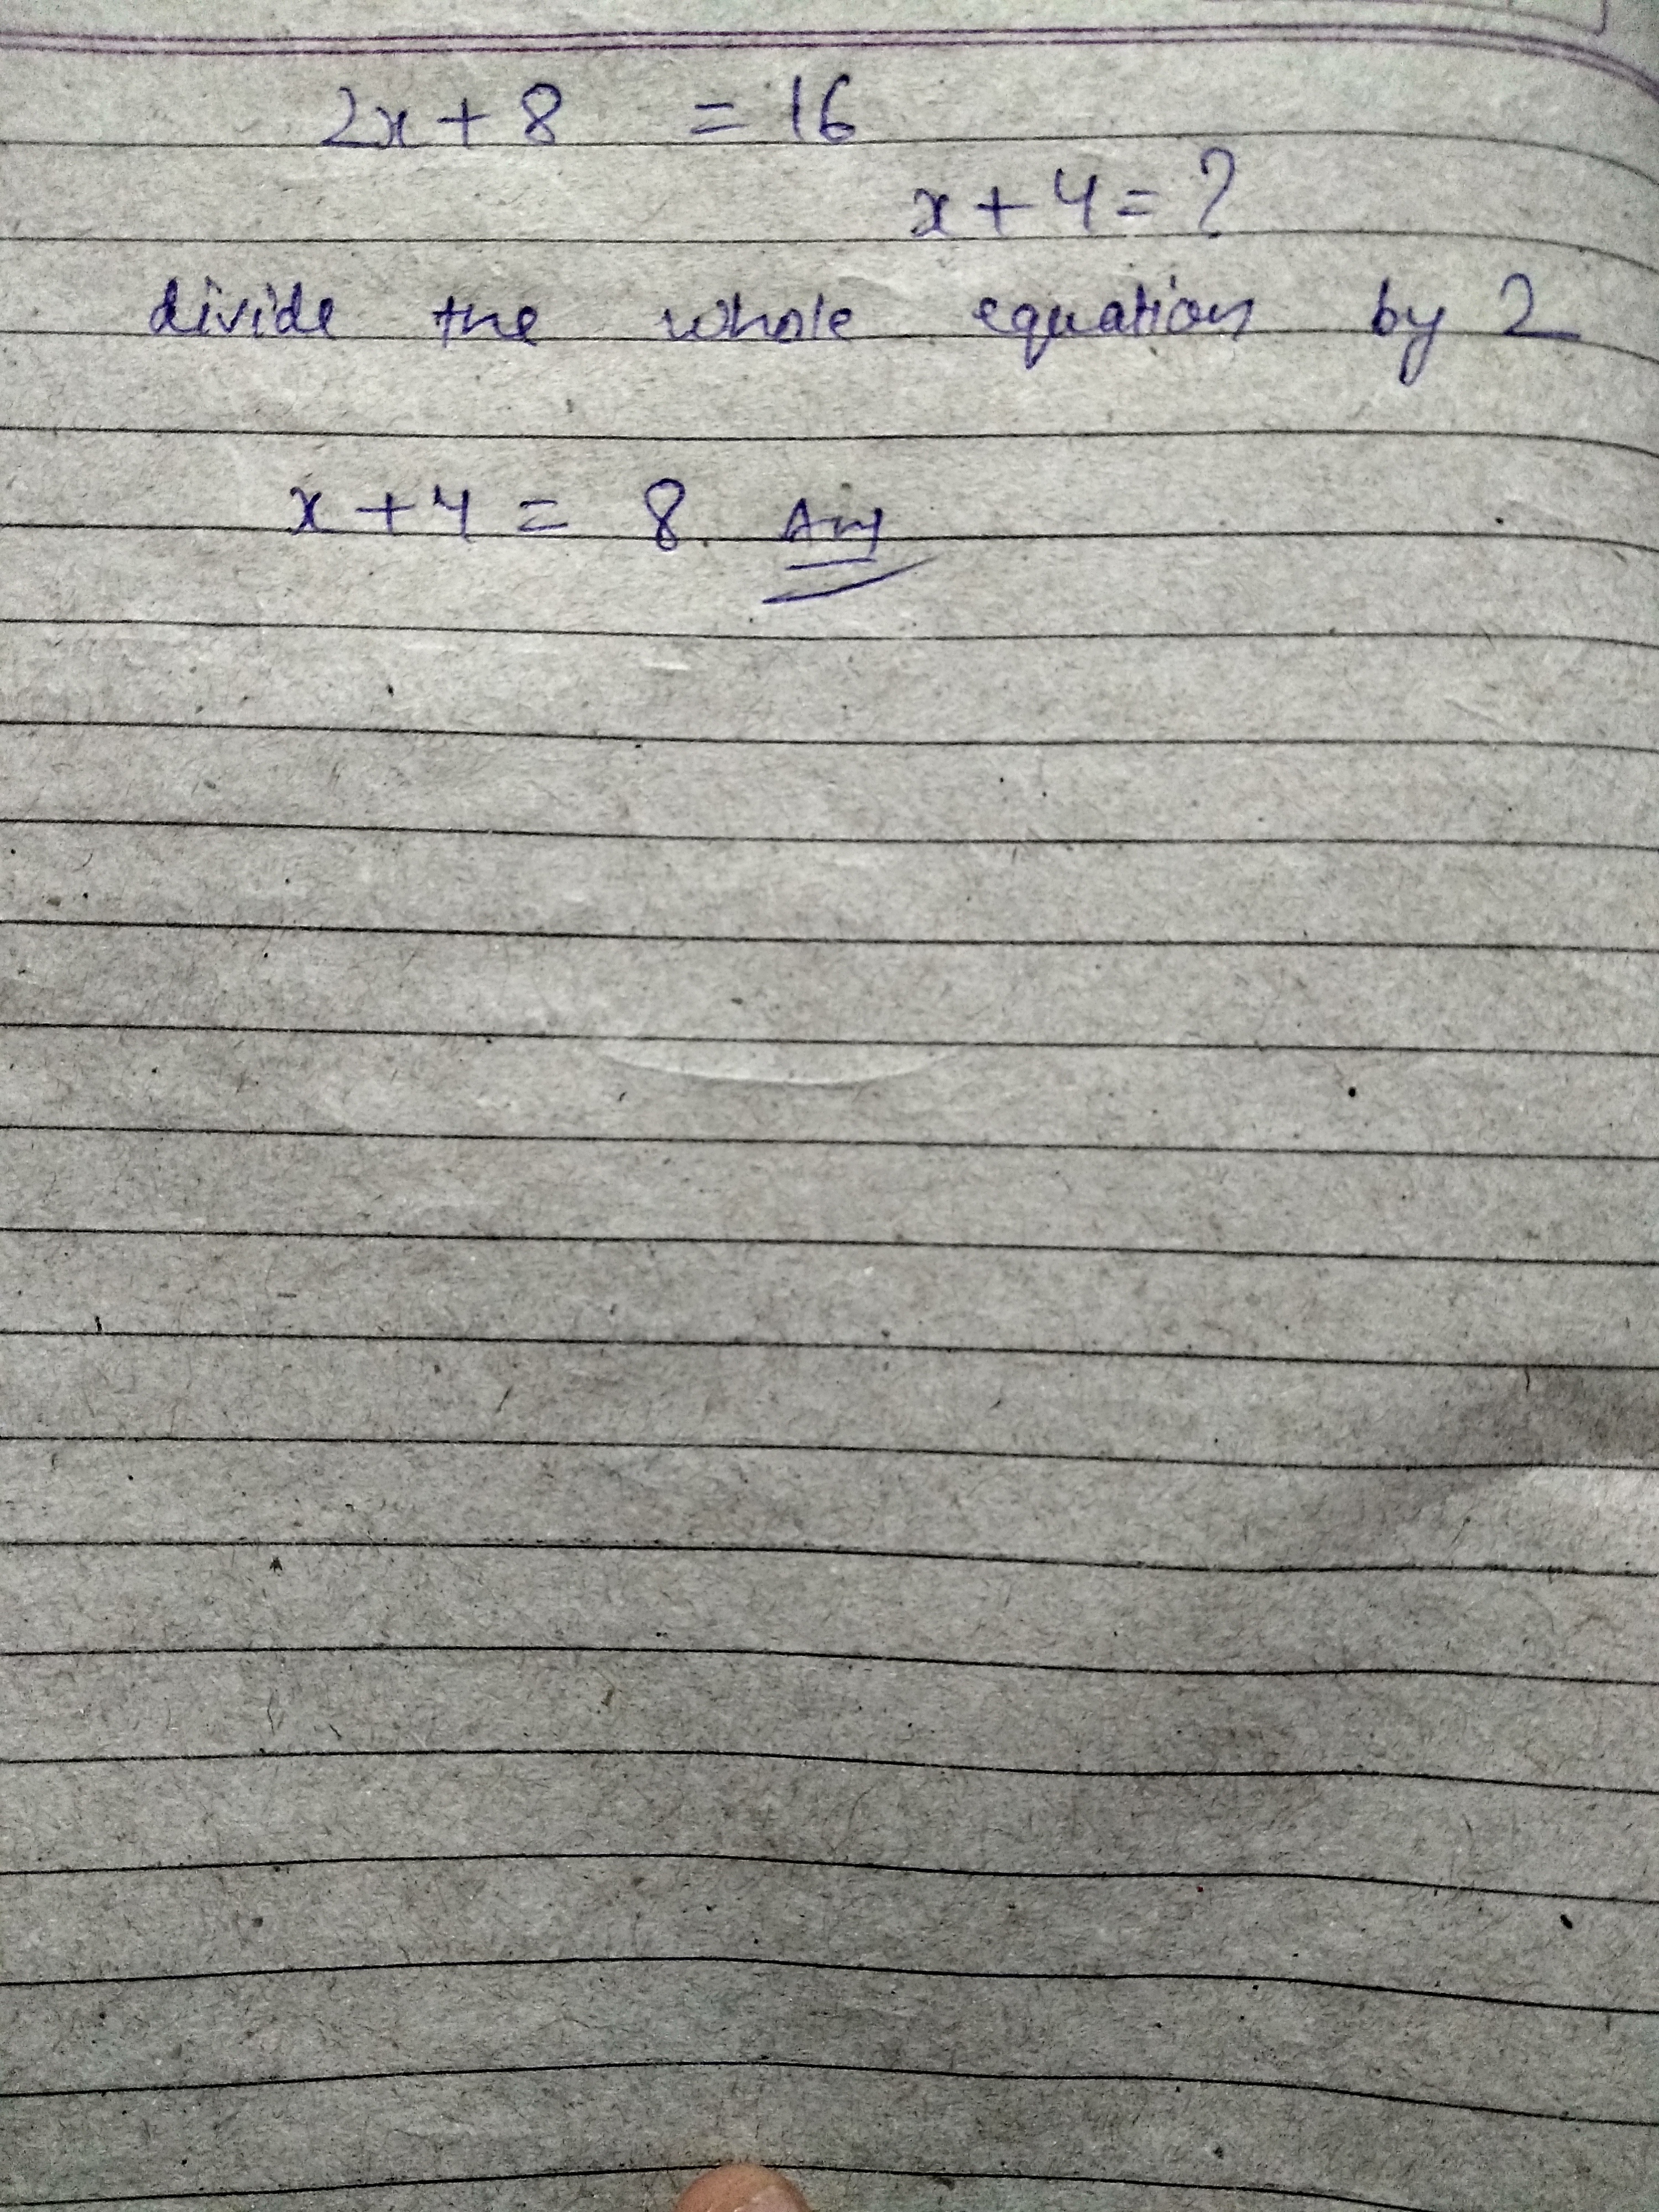 2x + 8 = 16
x + 4 = ?
divide the whole equation by 2
x + 4 = 8. Ans